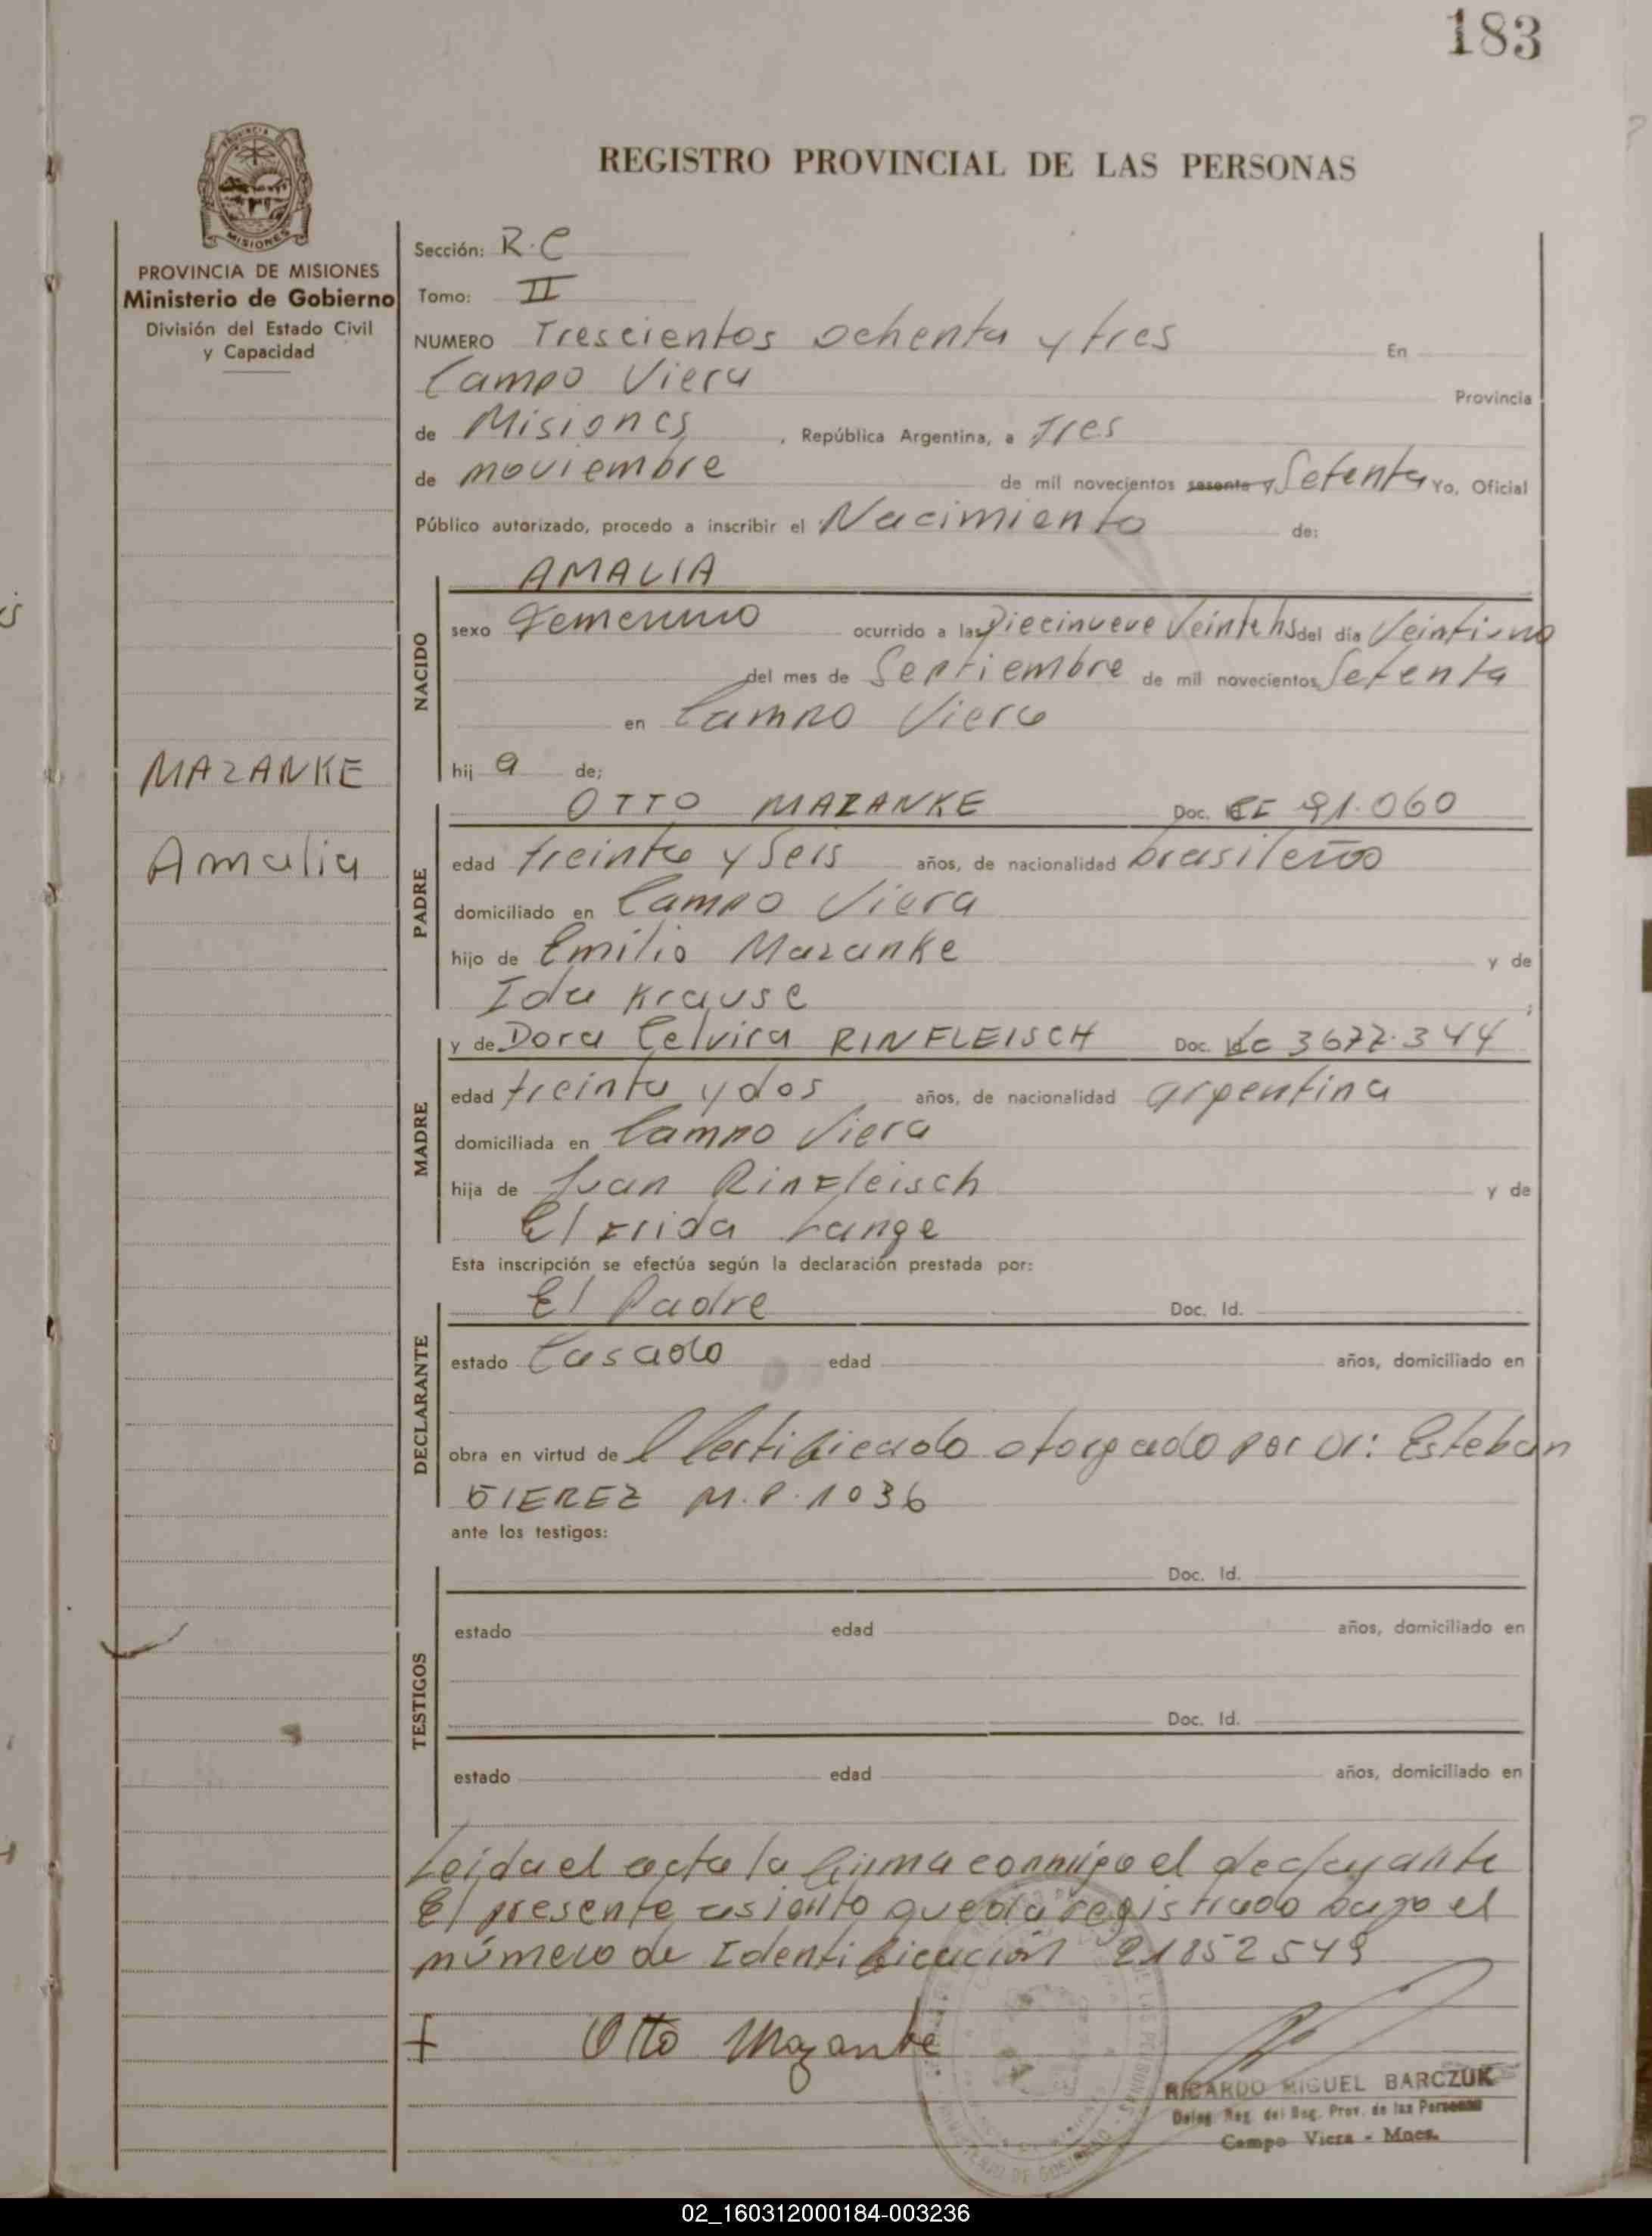 183
REGISTRO PROVINCIAL DE LAS PERSONAS
MISIONES
PROVINCIA DE MISIONES
Ministerio de Gobierno
División del Estado Civil
y Capacidad
Sección: R.C
Tomo: II
NUMERO Trescientos ochenta y tres En
Campo Viera Provincia
de Misiones, República Argentina, a Tres
de noviembre de mil novecientos sesenta y Setenta Yo, Oficial
Público autorizado, procedo a inscribir el Nacimiento de:
AMALIA
NACIDO
sexo Femenino ocurrido a las Diecinueve Veinte hs del día Veintiuno
del mes de Septiembre de mil novecientos Setenta
en Campo Viera
hij a de;
MAZANKE
Amalia
PADRE
OTTO MAZANKE Doc. CI 91.060
edad treinta y seis años, de nacionalidad brasileño
domiciliado en Campo Viera
hijo de Emilio Mazanke y de
Ida Krause
MADRE
y de Dora Celvira RINFLEISCH Doc. LC 3677.344
edad treinta y dos años, de nacionalidad argentina
domiciliada en Campo Viera
hija de Juan Rinfleisch y de
Elfrida Lange
Esta inscripción se efectúa según la declaración prestada por:
DECLARANTE
El Padre Doc. Id.
estado Casado edad años, domiciliado en
obra en virtud de Certificado otorgado por Dr: Esteban
M.P. 1036
ante los testigos:
TESTIGOS
Doc. Id.
estado edad años, domiciliado en
Doc. Id.
estado edad años, domiciliado en
Leida el acta la firma conmigo el declarante
El presente asiento queda registrado bajo el
número de Identificación 21852549
Otto Mazanke
RICARDO MIGUEL BARCZUK
Deleg. Reg. del Reg. Prov. de las Personas
Campo Viera - Mnes.
02_160312000184-003236